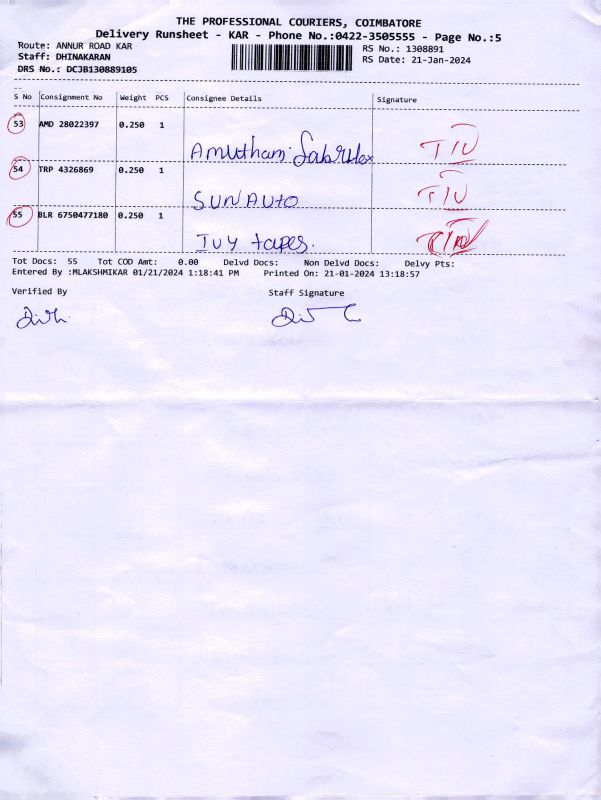 THE PROFESSIONAL COURIERS, COIMBATORE
Delivery Runsheet - KAR - Phone No.:0422-3505555 - Page No.:5
Route: ANNUR ROAD KAR
Staff: DHINAKARAN
DRS No.: DCJB130889105
RS No.: 1308891
RS Date: 21-Jan-2024
S No Consignment No Weight PCS Consignee Details Signature
53 AMD 28022397 0.250 1
Amutham
T/U
54 TRP 4326869 0.250 1
SUN AUTO
T/U
55 BLR 6750477180 0.250 1
IVY tapes.
Tot Docs: 55 Tot COD Amt: 0.00 Delvd Docs: Non Delvd Docs: Delvy Pts:
Entered By :MLAKSHMIKAR 01/21/2024 1:18:41 PM Printed On: 21-01-2024 13:18:57
Verified By Staff Signature